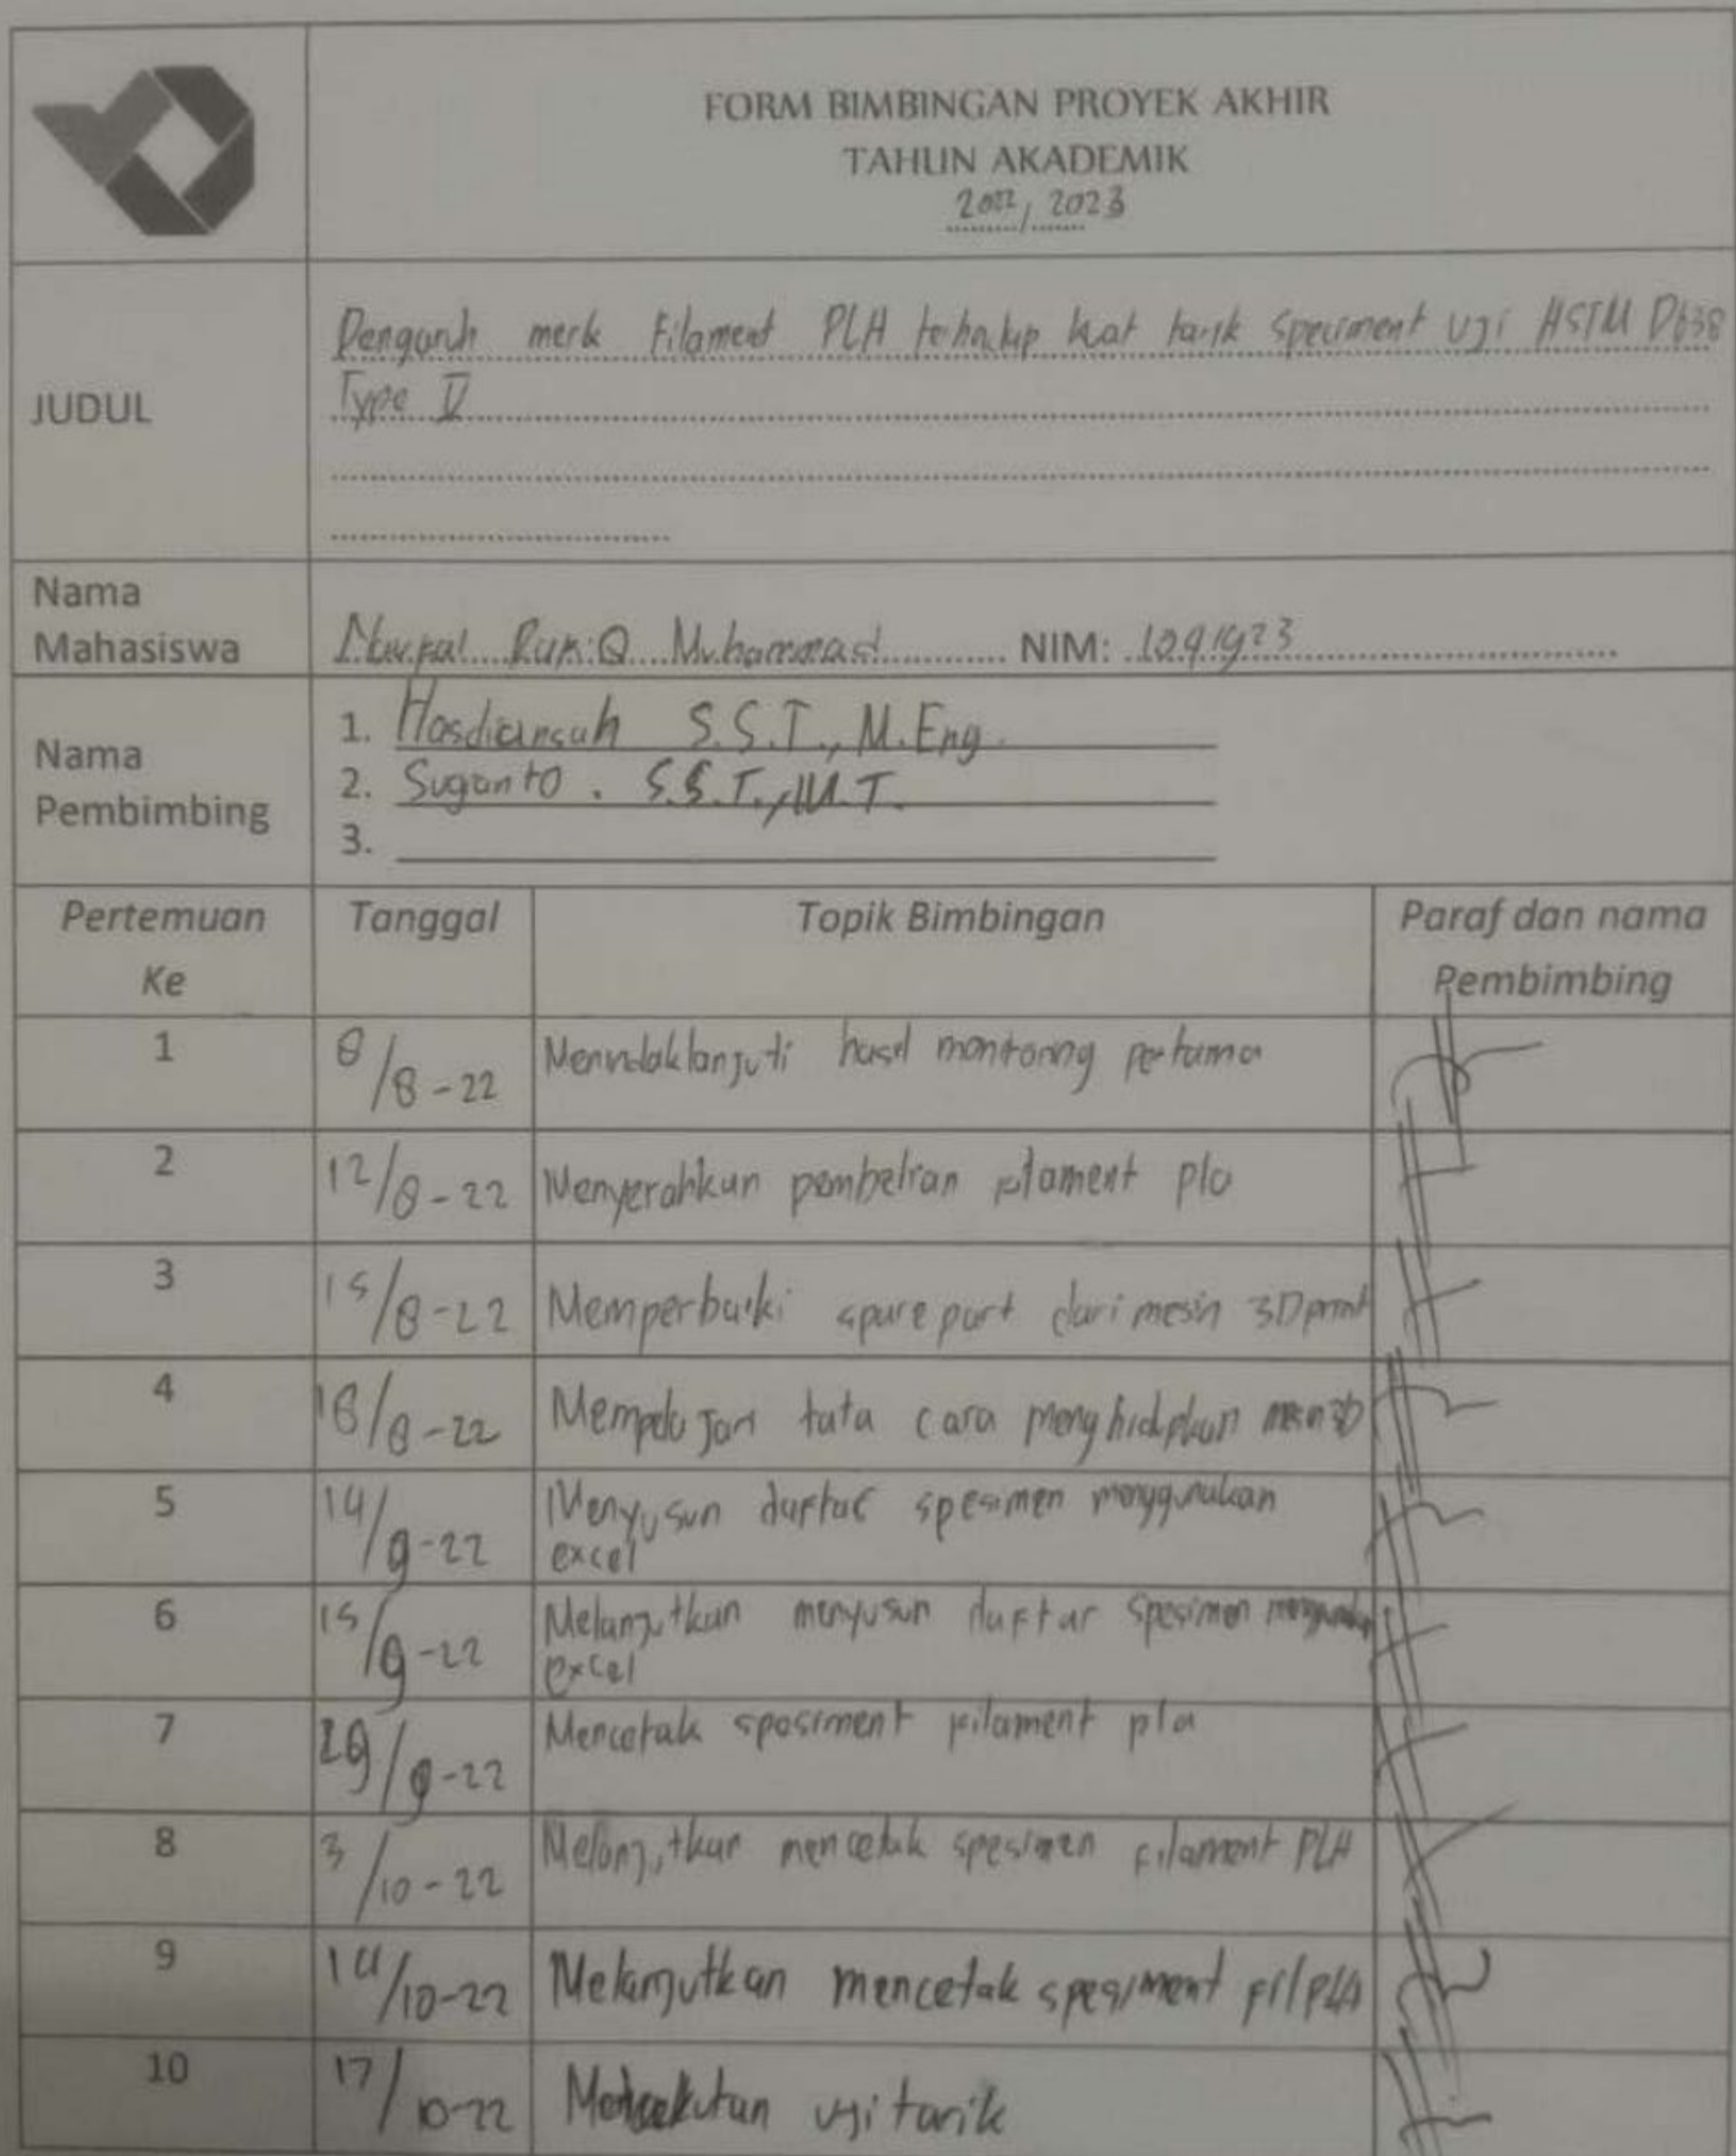 FORM BIMBINGAN PROYEK AKHIR
TAHUN AKADEMIK
2022 / 2023
JUDUL
Pengaruh merk Filament PLA terhadap kuat tarik Speciment uji ASTM D638
Type V
Nama
Mahasiswa
Rafi.Q Muhammad NIM: 1041923
Nama
Pembimbing
1. Hasdiansah S.S.T., M.Eng.
2. Sugianto . S.S.T., M.T.
3.
Pertemuan Ke
Tanggal
Topik Bimbingan
Paraf dan nama Pembimbing
1 8/8-22 Menindaklanjuti hasil monitoring pertama
2 12/8-22 Menyerahkan pembelian filament pla
3 15/8-22 Memperbaiki sparepart dari mesin 3D print
4 18/8-22 Mempelajari tata cara menghidupkan mesin 3D
5 14/9-22 Menyusun daftar spesimen menggunakan
excel
6 15/9-22 Melanjutkan menyusun daftar spesimen menggunakan
excel
7 29/9-22 Mencetak spesiment filament pla
8 3/10-22 Melanjutkan mencetak spesimen filament PLA
9 14/10-22 Melanjutkan mencetak spesiment fil PLA
10 17/10-22 uji tarik